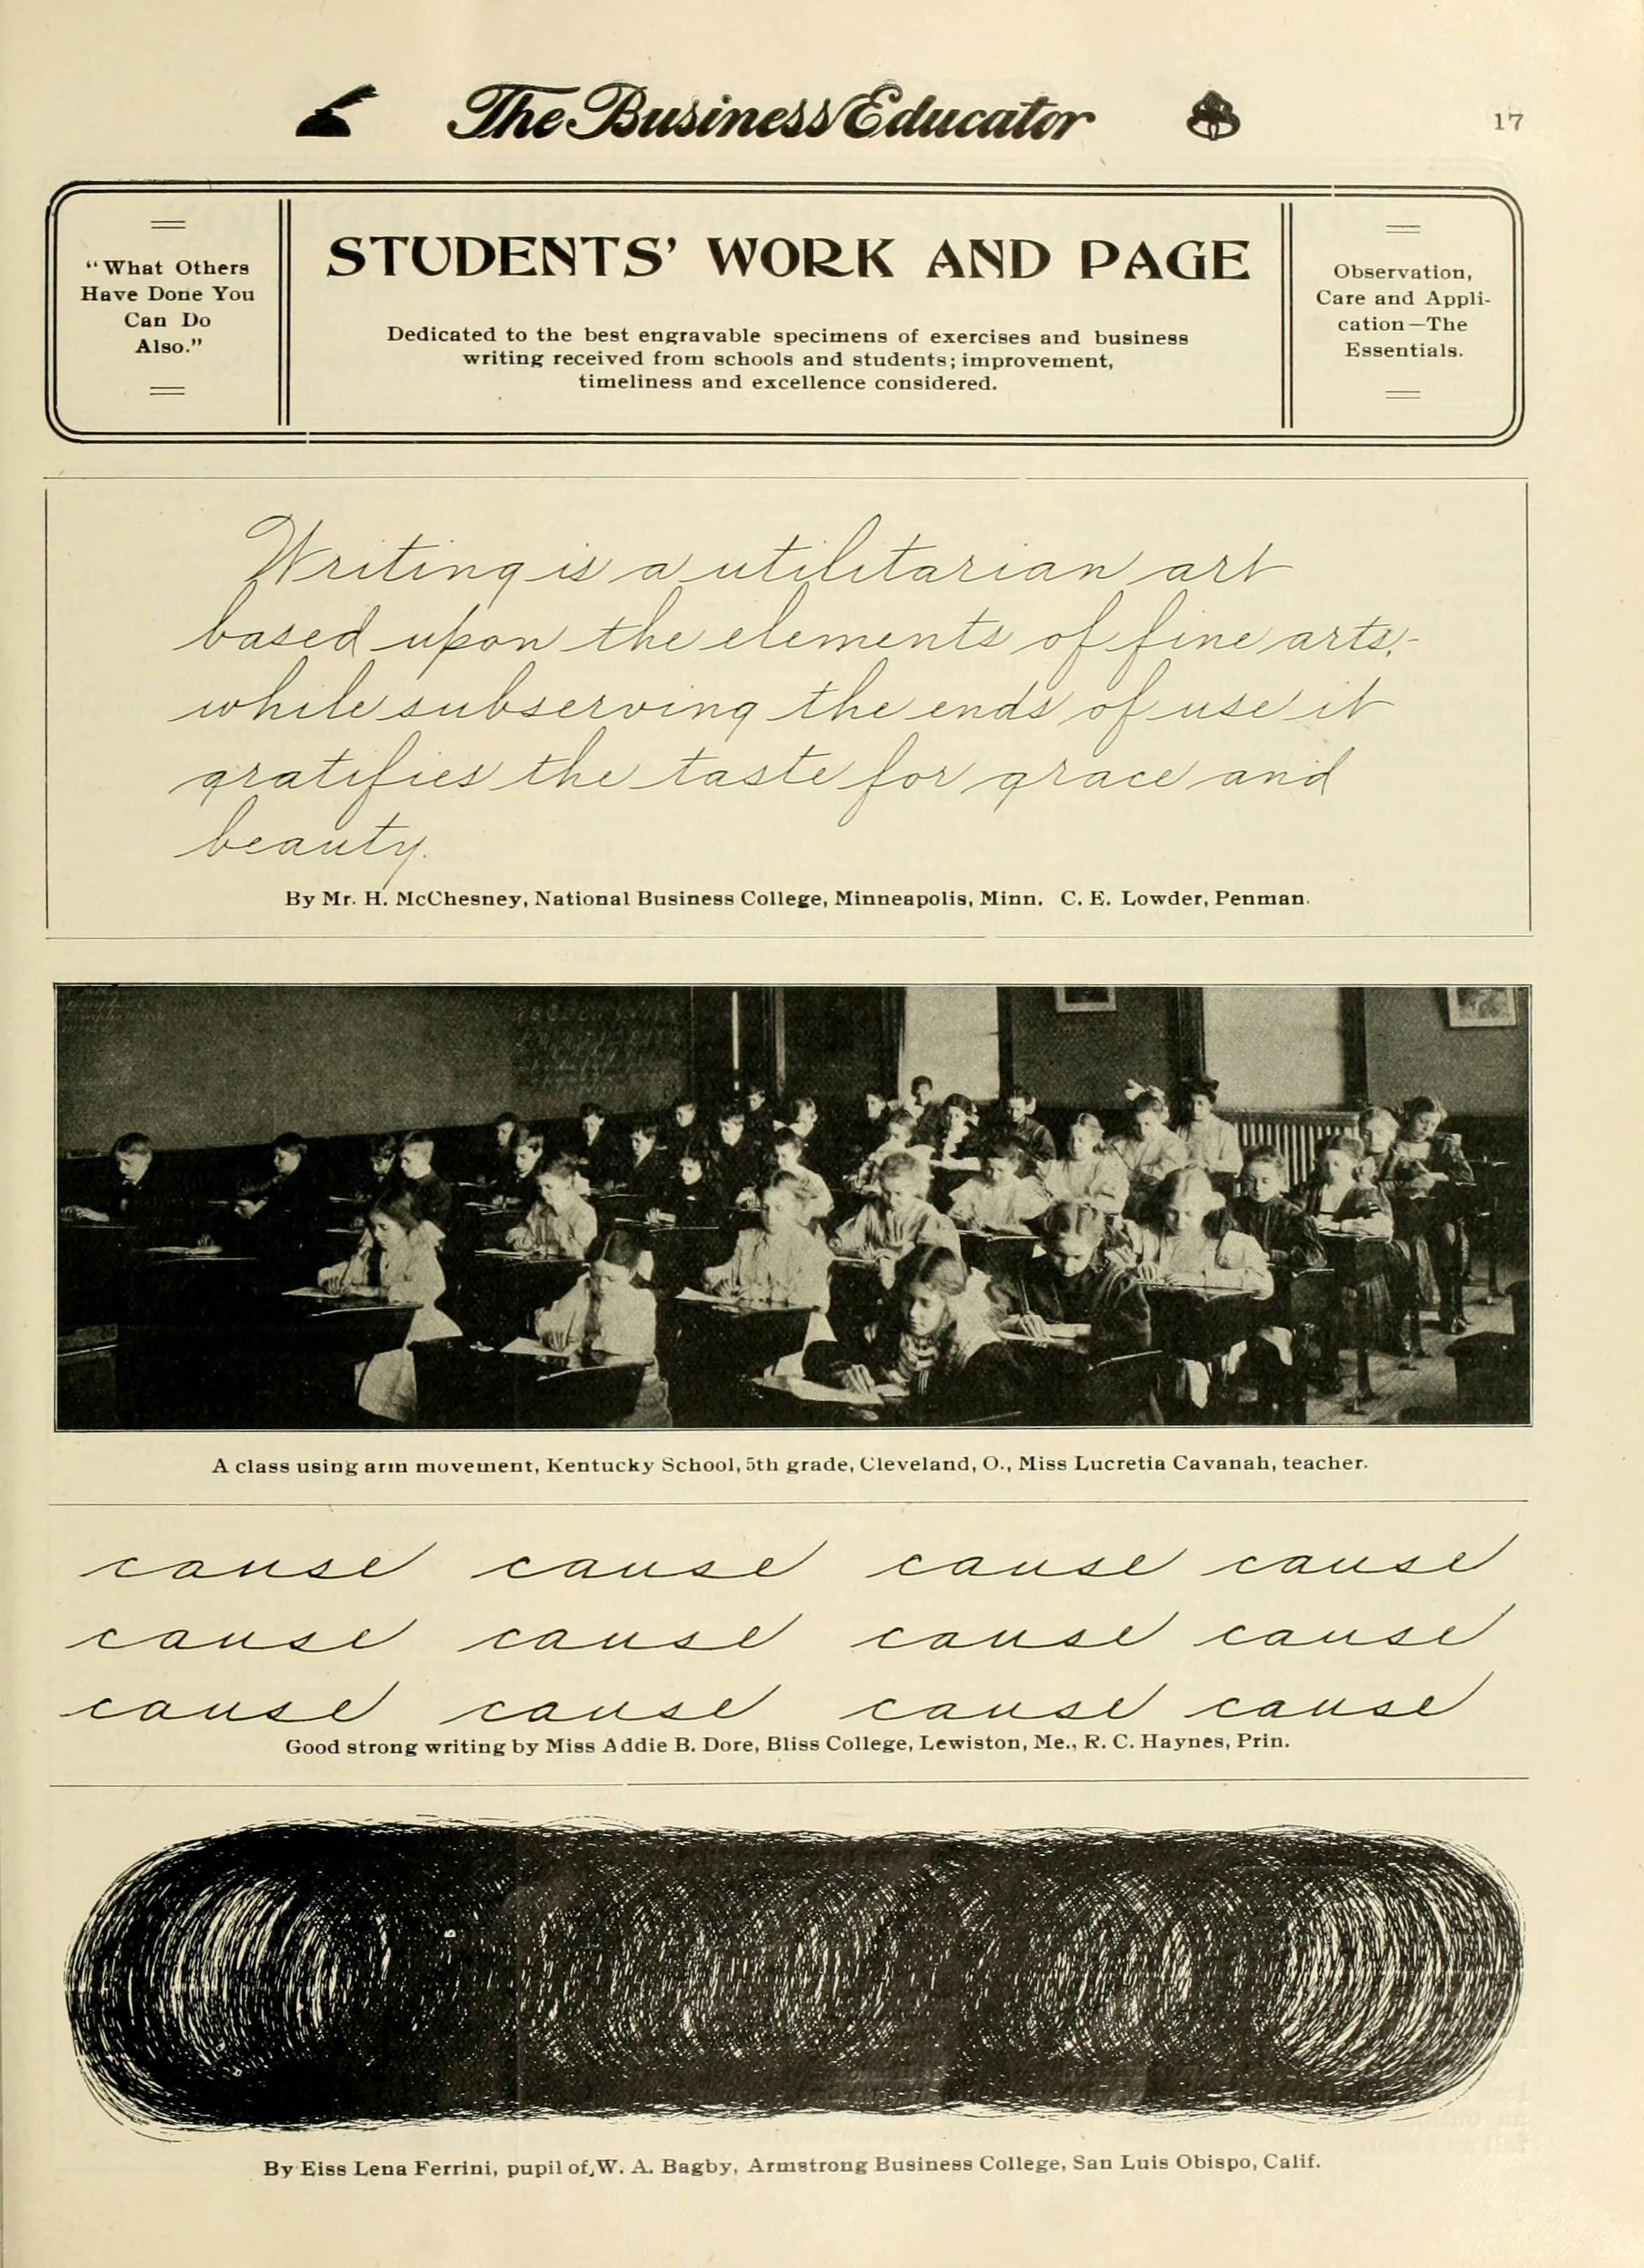 The Business Educator
17
"What Others
Have Done You
Can Do
Also."
STUDENTS' WORK AND PAGE
Dedicated to the best engravable specimens of exercises and business
writing received from schools and students; improvement,
timeliness and excellence considered.
Observation,
Care and Appli-
cation—The
Essentials.
Writing is a utilitarian art
based upon the elements of fine arts;-
while subserving the ends of use it
gratifies the taste for grace and
beauty.
By Mr. H. McChesney, National Business College, Minneapolis, Minn. C. E. Lowder, Penman.
A class using arm movement, Kentucky School, 5th grade, Cleveland, O., Miss Lucretia Cavanah, teacher.
cause cause cause cause
cause cause cause cause
cause cause cause cause
Good strong writing by Miss Addie B. Dore, Bliss College, Lewiston, Me., R. C. Haynes, Prin.
By Eiss Lena Ferrini, pupil of W. A. Bagby, Armstrong Business College, San Luis Obispo, Calif.